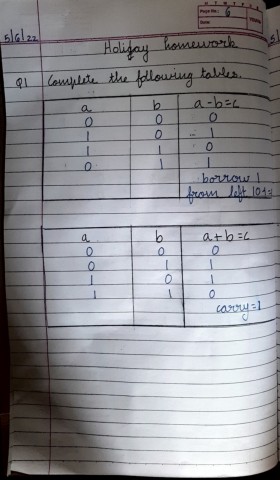 Page No.: 6
Date
5/6/22
Holiday homework
Q1 Complete the following tables.
a b a-b=c
0 0 0
1 0 1
1 1 0
0 1 1
borrow 1
from left 10+
a b a+b=c
0 0 0
0 1 1
1 0 1
1 1 0
carry=1